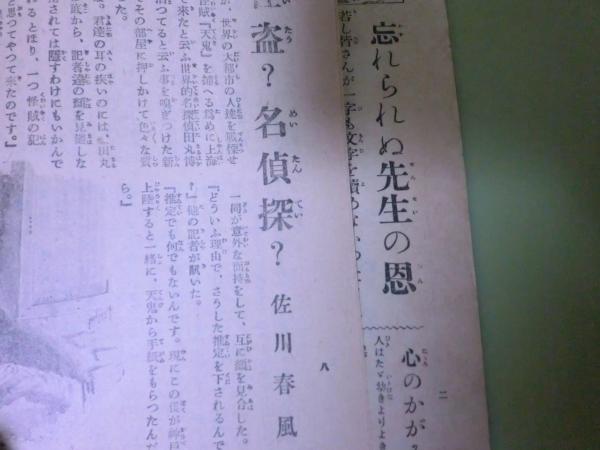 忘れられぬ先生の恩
若し皆さんが一字も文字を
心のかが
二
人はたゞ幼きよりよき
盗?名偵探?
佐川春風
八
が、世界の大都市の人達を戦慄せ
怪賊『天鬼』を捕へる為めに上海
て来たと云ふ世界的名探偵田丸博
泊つてると云ふ事を嗅ぎつけた新
その部屋に押しかけて色々な質
た。
。君達の耳の疾いのには
底から、記者達の顔を見廻しな
されては隠すわけにもいかんで
るとほり、一つ怪賊の犯
思つてやつて来たのです。』
一同が意外な面持をして、互に顔を見合した。
『どういふ理由で、さうした推定を下されるんで
?』他の記者が訊いた。
『推定でも何でもないんです。現にこの僕が神戸
上陸すると一緒に、天鬼から手紙をもらつたんだ
ら。』